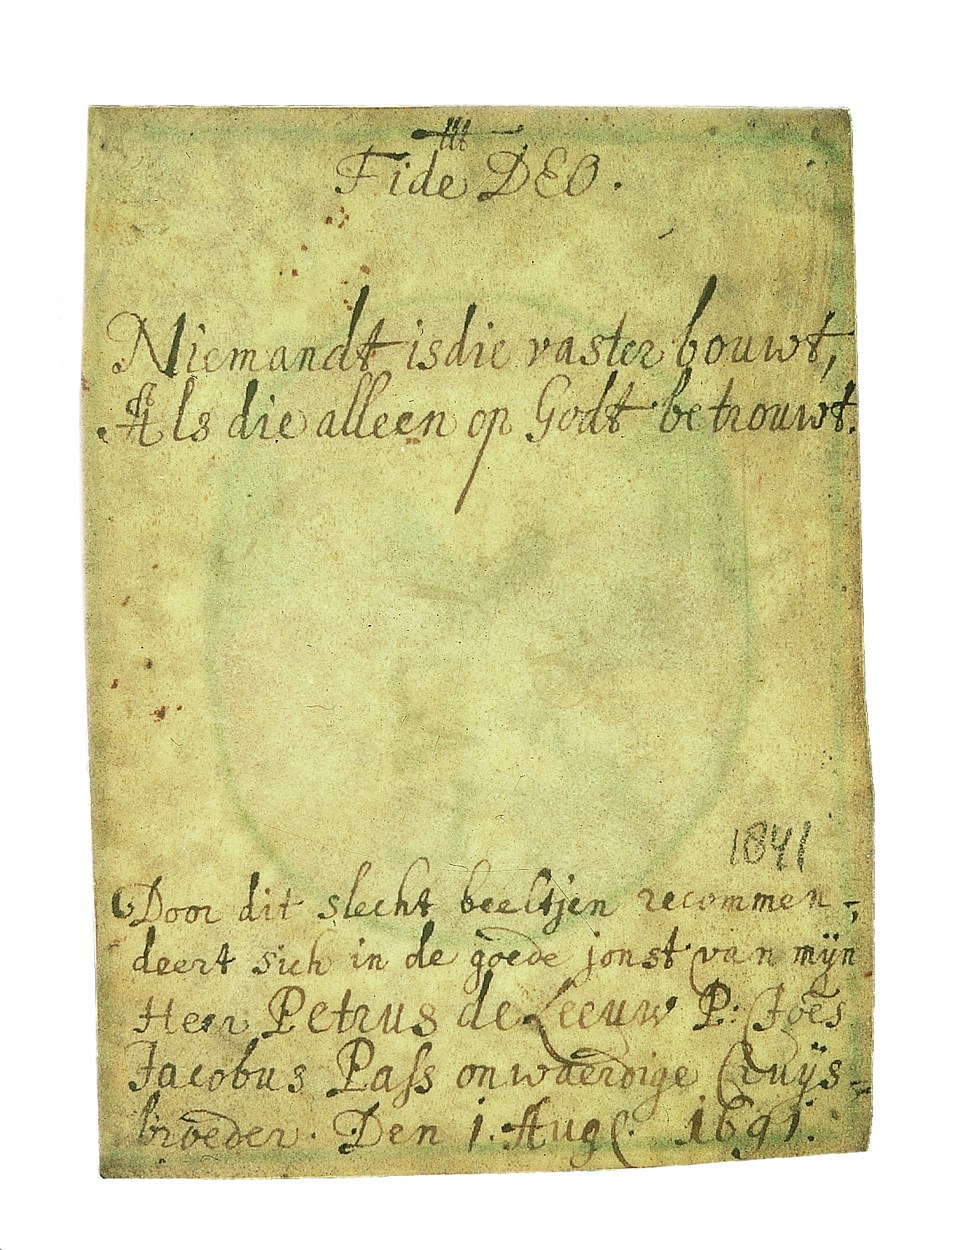 Fide DEO.
Niemandt is die vaster bouwt,
Als die alleen op Godt betrouwt.
1841
Door dit slecht beeltjen recommen-
deert sich in de goede jonst van mÿn
Heer Petrus de Leeuw P: Joēs
Jacobus Pass onwaerdige Cruÿs-
broeder. Den 1. Aug. 1691.